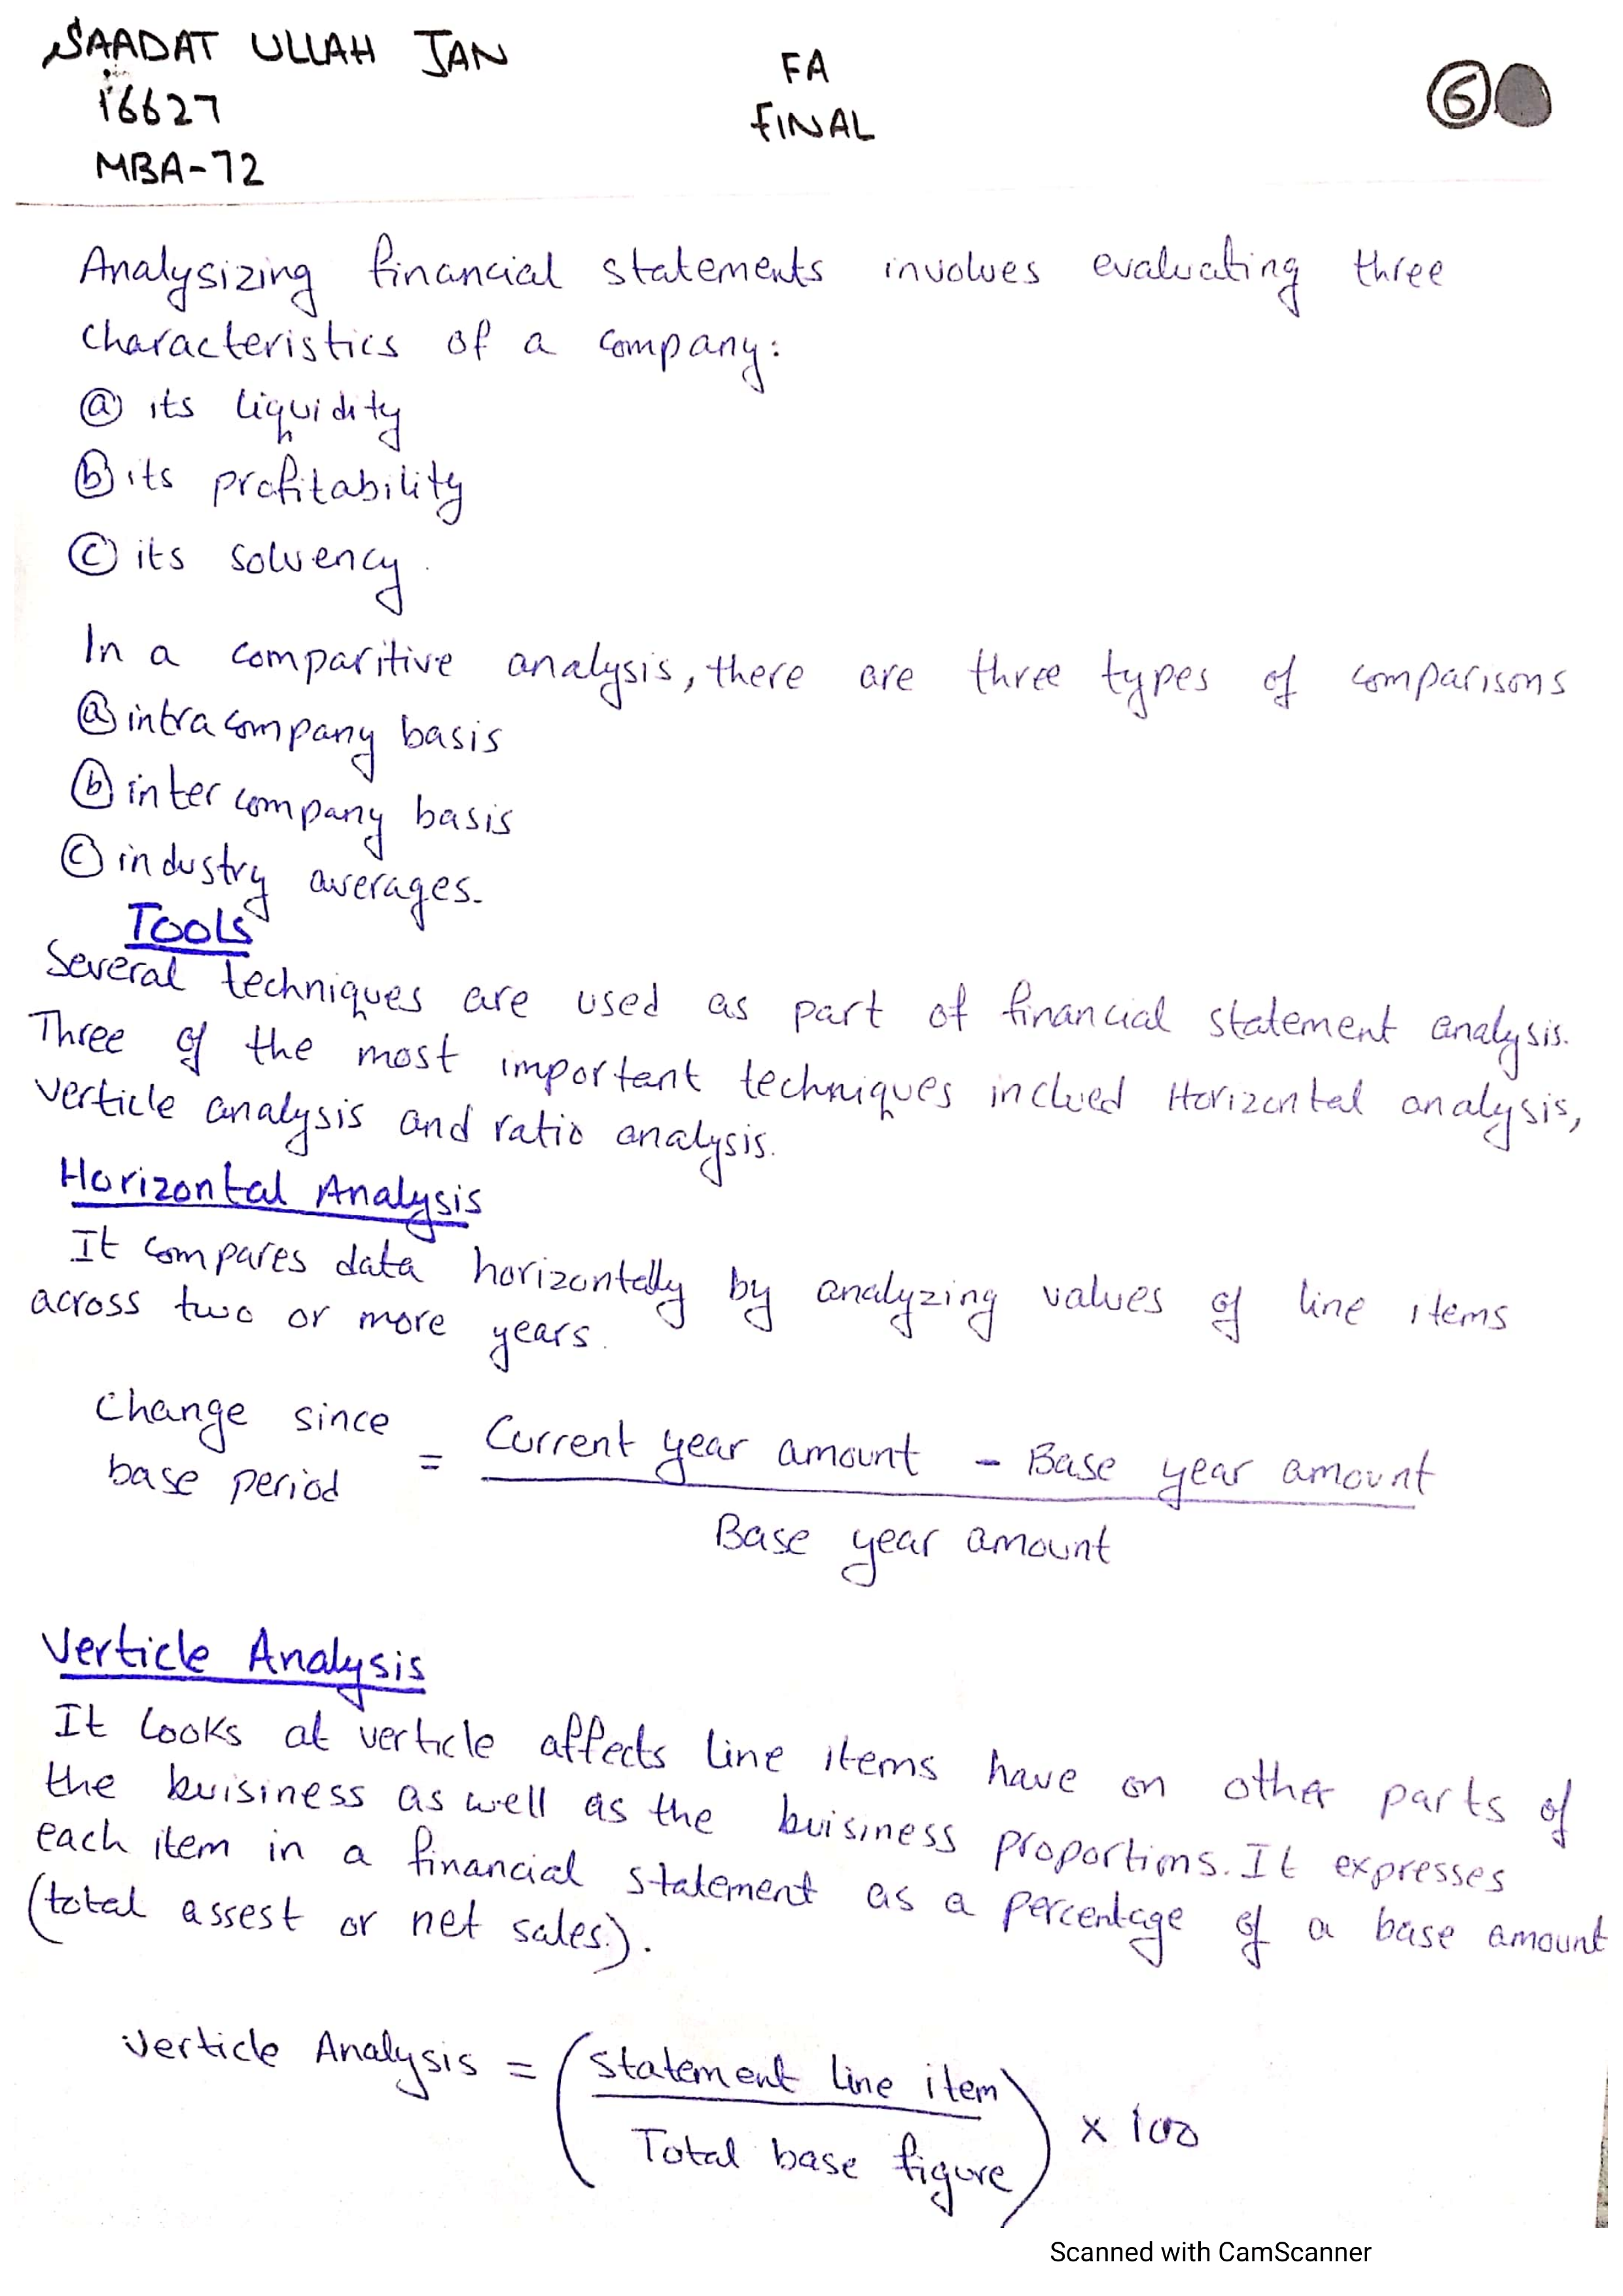 SAADAT ULLAH JAN
16627
MBA-72
FA
FINAL
6
Analysizing financial statements involves evaluating three
characteristics of a company:
(a) its liquidity
(b) its profitability
(c) its solvency.
In a comparitive analysis, there are three types of comparisons
(a) intracompany basis
(b) intercompany basis
(c) industry averages.
Tools
Several techniques are used as part of financial statement analysis.
Three of the most important techniques inclued Horizontal analysis,
verticle analysis and ratio analysis.
Horizontal Analysis
It compares data horizontally by analyzing values of line items
across two or more years.
Change since
base period = Current year amount - Base year amount
Base year amount
Verticle Analysis
It looks at verticle affects line items have on other parts of
the buisiness as well as the buisiness proportions. It expresses
each item in a financial statement as a percentage of a base amount
(total assest or net sales.).
Verticle Analysis = (Statement line item
Total base figure) x 100
Scanned with CamScanner